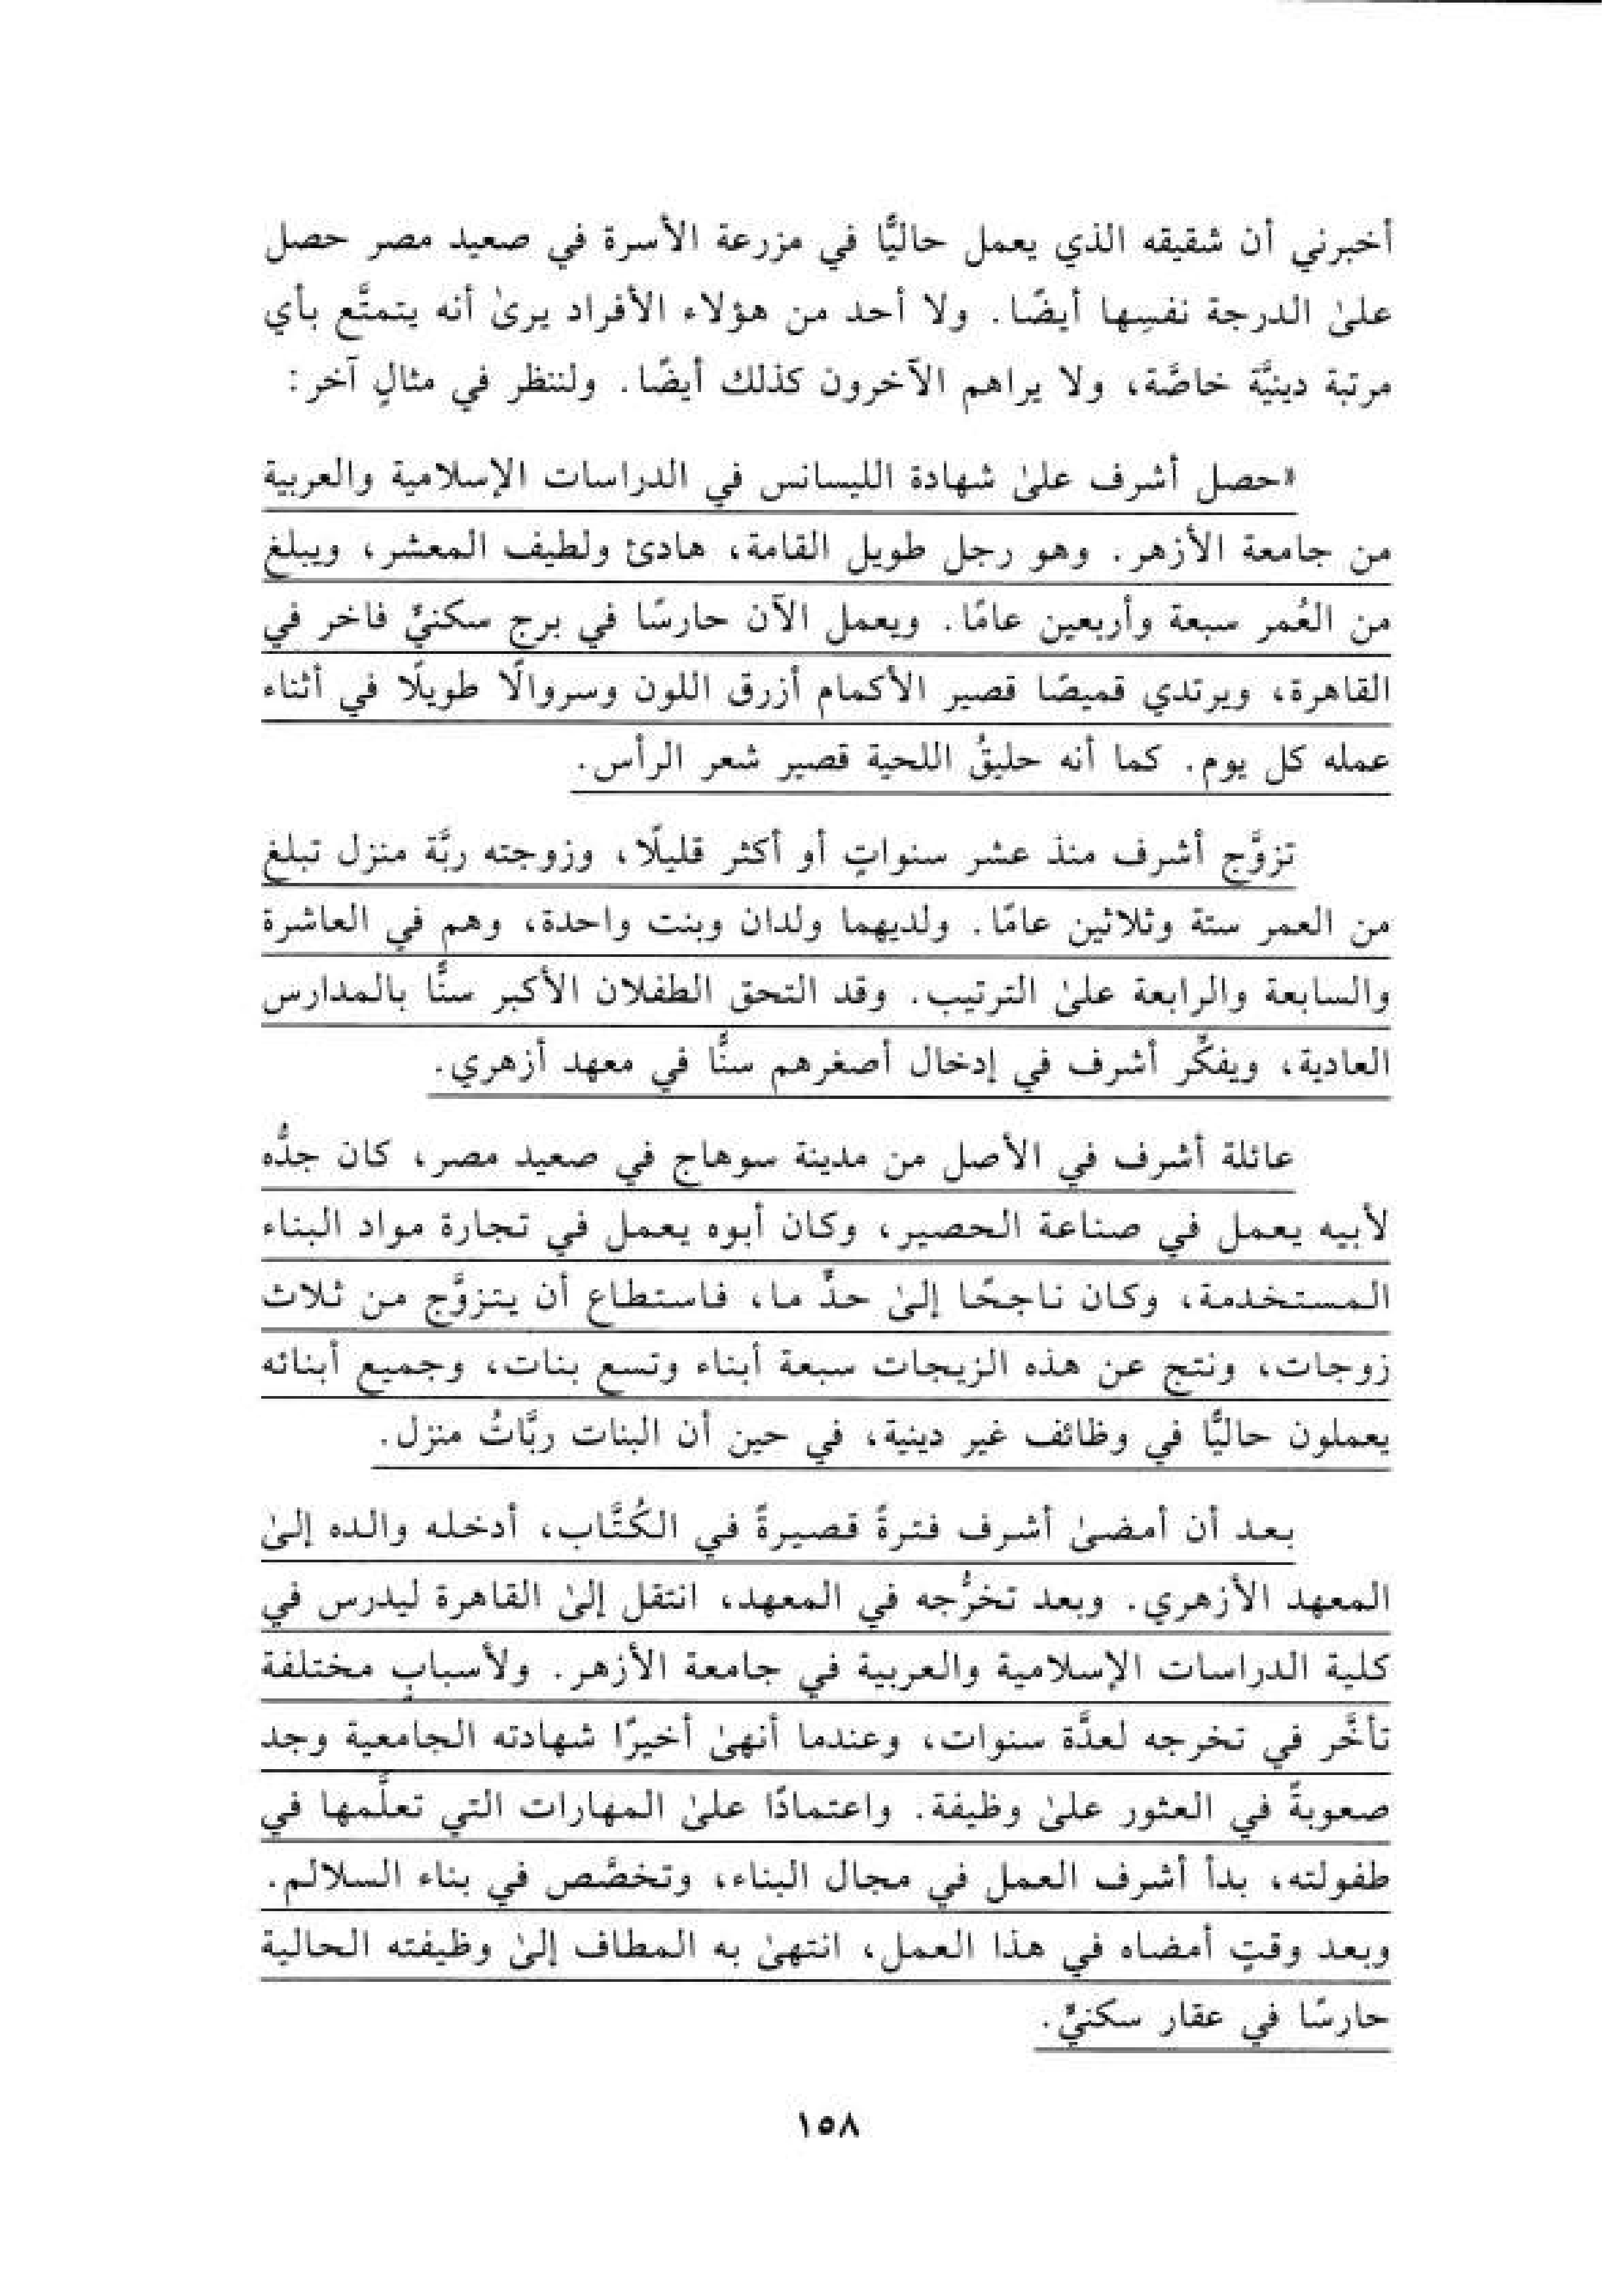 أخبرني أن شقيقه الذي يعمل حاليًّا في مزرعة الأسرة في صعيد مصر حصل
علىٰ الدرجة نفسِها أيضًا. ولا أحد من هؤلاء الأفراد يرىٰ أنه يتمتَّع بأي
مرتبة دينيَّة خاصَّة، ولا يراهم الآخرون كذلك أيضًا. ولننظر في مثالٍ آخر:
«حصل أشرف علىٰ شهادة الليسانس في الدراسات الإسلامية والعربية
من جامعة الأزهر. وهو رجل طويل القامة، هادئ ولطيف المعشر، ويبلغ
من العُمر سبعة وأربعين عامًا. ويعمل الآن حارسًا في برج سكنيٍّ فاخر في
القاهرة، ويرتدي قميصًا قصير الأكمام أزرق اللون وسروالًا طويلًا في أثناء
عمله كل يوم. كما أنه حليقُ اللحية قصير شعر الرأس.
تزوَّج أشرف منذ عشر سنواتٍ أو أكثر قليلًا، وزوجته ربَّة منزل تبلغ
من العمر ستة وثلاثين عامًا. ولديهما ولدان وبنت واحدة، وهم في العاشرة
والسابعة والرابعة علىٰ الترتيب. وقد التحق الطفلان الأكبر سنًّا بالمدارس
العادية، ويفكِّر أشرف في إدخال أصغرهم سنًّا في معهد أزهري.
عائلة أشرف في الأصل من مدينة سوهاج في صعيد مصر، كان جدُّه
لأبيه يعمل في صناعة الحصير، وكان أبوه يعمل في تجارة مواد البناء
المستخدمة، وكان ناجحًا إلىٰ حدٍّ ما، فاستطاع أن يتزوَّج من ثلاث
زوجات، ونتج عن هذه الزيجات سبعة أبناء وتسع بنات، وجميع أبنائه
يعملون حاليًّا في وظائف غير دينية، في حين أن البنات ربَّاتُ منزل.
بعد أن أمضىٰ أشرف فترةً قصيرةً في الكُتَّاب، أدخله والده إلىٰ
المعهد الأزهري. وبعد تخرُّجه في المعهد، انتقل إلىٰ القاهرة ليدرس في
كلية الدراسات الإسلامية والعربية في جامعة الأزهر. ولأسبابٍ مختلفة
تأخَّر في تخرجه لعدَّة سنوات، وعندما أنهىٰ أخيرًا شهادته الجامعية وجد
صعوبةً في العثور علىٰ وظيفة. واعتمادًا علىٰ المهارات التي تعلَّمها في
طفولته، بدأ أشرف العمل في مجال البناء، وتخصَّص في بناء السلالم.
وبعد وقتٍ أمضاه في هذا العمل، انتهىٰ به المطاف إلىٰ وظيفته الحالية
حارسًا في عقار سكنيٍّ.
١٥٨